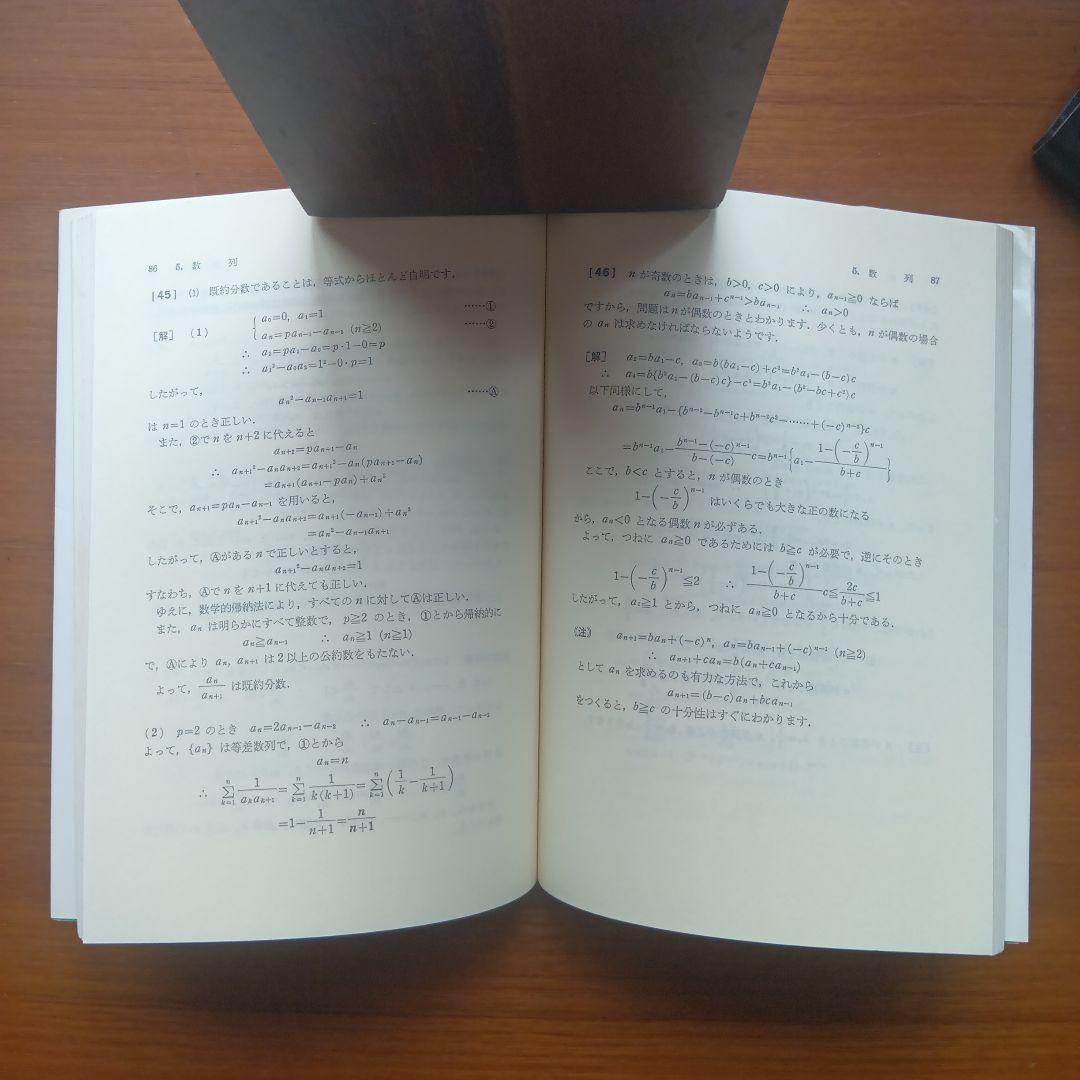 86 5. 数 列
[45] (1) 既約分数であることは，等式からほとんど自明です．
[解] (1) { a₀=0, a₁=1 ……①
aₙ=paₙ₋₁−aₙ₋₂ (n≧2) ……②
∴ a₂=pa₁−a₀=p·1−0=p
∴ a₁²−a₀a₂=1²−0·p=1
したがって，
aₙ²−aₙ₋₁aₙ₊₁=1 ……Ⓐ
は n=1 のとき正しい．
また，②で n を n+2 に代えると
aₙ₊₂=paₙ₊₁−aₙ
∴ aₙ₊₁²−aₙaₙ₊₂=aₙ₊₁²−aₙ(paₙ₊₁−aₙ)
=aₙ₊₁(aₙ₊₁−paₙ)+aₙ²
そこで，aₙ₊₁=paₙ−aₙ₋₁ を用いると，
aₙ₊₁²−aₙaₙ₊₂=aₙ₊₁(−aₙ₋₁)+aₙ²
=aₙ²−aₙ₋₁aₙ₊₁
したがって，Ⓐがある n で正しいとすると，
aₙ₊₁²−aₙaₙ₊₂=1
すなわち，Ⓐで n を n+1 に代えても正しい．
ゆえに，数学的帰納法により，すべての n に対してⒶは正しい．
また，aₙ は明らかにすべて整数で，p≧2 のとき，①とから帰納的に
aₙ≧aₙ₋₁ ∴ aₙ≧1 (n≧1)
で，Ⓐにより aₙ, aₙ₊₁ は 2 以上の公約数をもたない．
よって，aₙ/aₙ₊₁ は既約分数．
(2) p=2 のとき aₙ=2aₙ₋₁−aₙ₋₂ ∴ aₙ−aₙ₋₁=aₙ₋₁−aₙ₋₂
よって，{aₙ} は等差数列で，①とから
aₙ=n
∴ Σₖ₌₁ⁿ 1/(aₖaₖ₊₁)=Σₖ₌₁ⁿ 1/(k(k+1))=Σₖ₌₁ⁿ(1/k−1/(k+1))
=1−1/(n+1)=n/(n+1)
5. 数 列 87
[46] n が奇数のときは，b>0, c>0 により，aₙ₋₁≧0 ならば
aₙ=baₙ₋₁+cⁿ⁻¹>baₙ₋₁ ∴ aₙ>0
ですから，問題は n が偶数のときとわかります．少くとも，n が偶数の場合
の aₙ は求めなければならないようです．
[解] a₂=ba₁−c, a₃=b(ba₁−c)+c²=b²a₁−(b−c)c
∴ a₄=b{b²a₁−(b−c)c}−c³=b³a₁−(b²−bc+c²)c
以下同様にして，
aₙ=bⁿ⁻¹a₁−{bⁿ⁻²−bⁿ⁻³c+bⁿ⁻⁴c²−……+(−c)ⁿ⁻²}c
=bⁿ⁻¹a₁−(bⁿ⁻¹−(−c)ⁿ⁻¹)/(b−(−c)) c=bⁿ⁻¹{a₁−(1−(−c/b)ⁿ⁻¹)/(b+c)}
ここで，b<c とすると，n が偶数のとき
1−(−c/b)ⁿ⁻¹ はいくらでも大きな正の数になる
から，aₙ<0 となる偶数 n が必ずある．
よって，つねに aₙ≧0 であるためには b≧c が必要で，逆にそのとき
1−(−c/b)ⁿ⁻¹≦2 ∴ (1−(−c/b)ⁿ⁻¹)/(b+c) c≦2c/(b+c)≦1
したがって，a₁≧1 とから，つねに aₙ≧0 となるから十分である．
《注》 aₙ₊₁=baₙ+(−c)ⁿ, aₙ=baₙ₋₁+(−c)ⁿ⁻¹ (n≧2)
∴ aₙ₊₁+caₙ=b(aₙ+caₙ₋₁)
として aₙ を求めるのも有力な方法で，これから
aₙ₊₁=(b−c)aₙ+bcaₙ₋₁
をつくると，b≧c の十分性はすぐにわかります．